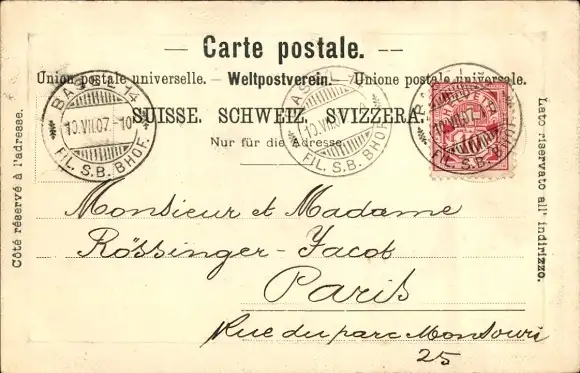 — Carte postale. --
Union postale universelle. — Weltpostverein. — Unione postale universale.
SUISSE. SCHWEIZ. SVIZZERA.
Nur für die Adresse.
BASEL 14
10.VII.07.-10
FIL. S.B. BHOF.
Côté réservé à l'adresse.
Lato riservato all' indirizzo.
Monsieur et Madame
Rössinger-Jacot
Paris
Rue du parc Monsouri
25